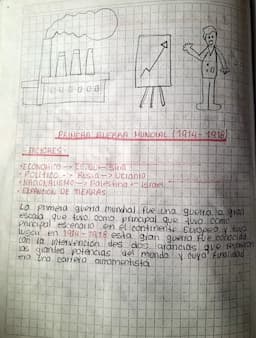 PRIMERA GUERRA MUNDIAL (1914-1918)
FACTORES:
•ECONOMICO →
•POLITICO → Rusia → Ucrania
•NACIONALISMO → Palestina - Israel
•EXPANCION DE TIERRAS.
La primera guerra mundial fue una guerra a gran
escala que tuvo como principal que tuvo como
principal escenario en el continente Europeo y tuvo
lugar en 1914-1918 esta gran guerra fue conocida
con la intervención des dos alianzas que
las grandes potencias del mundo y cuya finalidad
era una carrera armamentista